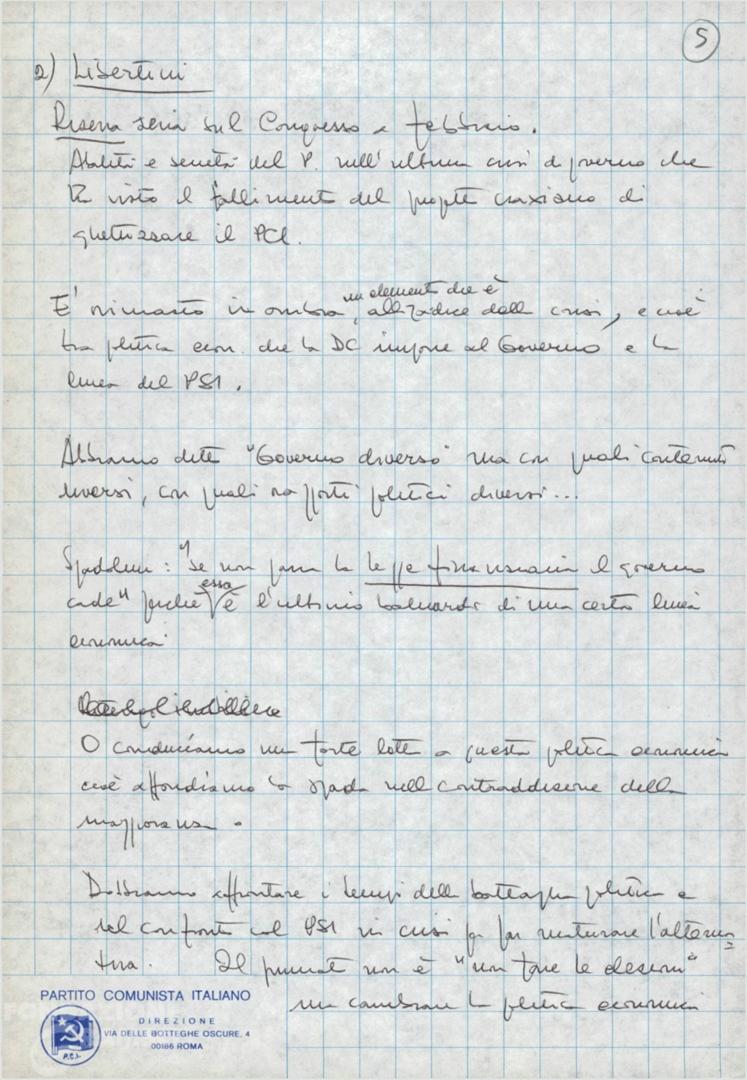 5
2) Libertini
Riserva seria sul Congresso a febbraio.
Abilità e serietà del P. nell'ultima crisi di governo che
ha visto il fallimento del progetto craxiano di
ghettizzare il PCI.
E' rimasto in ombra un elemento che è alla radice della crisi, e cioè
tra politica econ. che la DC impone al Governo e la
linea del PSI.
Abbiamo detto "Governo diverso" ma con quali contenuti
diversi, con quali rapporti politici diversi...
Spadolini: "Se non passa la legge finanziaria il governo
cade" perché essa è l'ultimo baluardo di una certa linea
economica
O conduciamo una forte lotta a questa politica economica
cioè affondiamo la spada nella contraddizione della
maggioranza.
Dobbiamo affrontare i tempi della battaglia politica e
del confronto col PSI in crisi per far maturare l'alterna=
tiva. Il primato non è "non fare le elezioni"
ma cambiare la politica economica
PARTITO COMUNISTA ITALIANO
DIREZIONE
VIA DELLE BOTTEGHE OSCURE, 4
00186 ROMA
P.C.I.